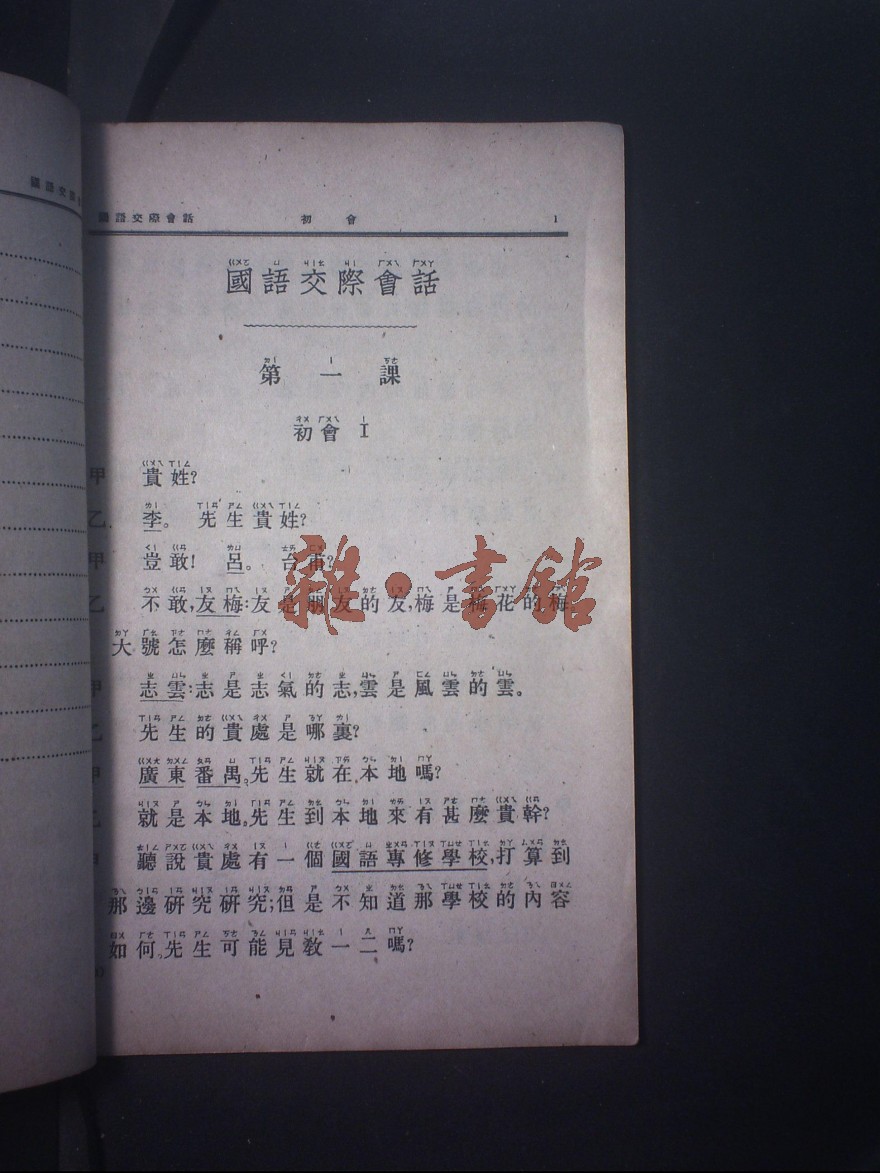 國語交際會話 初會 1
國語交際會話
第一課
初會 I
甲 貴姓?
乙 李。 先生貴姓?
甲 豈敢! 呂。 台甫?
乙 不敢,友梅:友是朋友的友,梅是梅花的梅。
大號怎麼稱呼?
甲 志雲:志是志氣的志,雲是風雲的雲。
乙 先生的貴處是哪裏?
甲 廣東番禺。先生就在本地嗎?
乙 就是本地。先生到本地來有甚麼貴幹?
甲 聽說貴處有一個國語專修學校,打算到
那邊研究研究;但是不知道那學校的內容
如何。先生可能見教一二嗎?
雜·書館